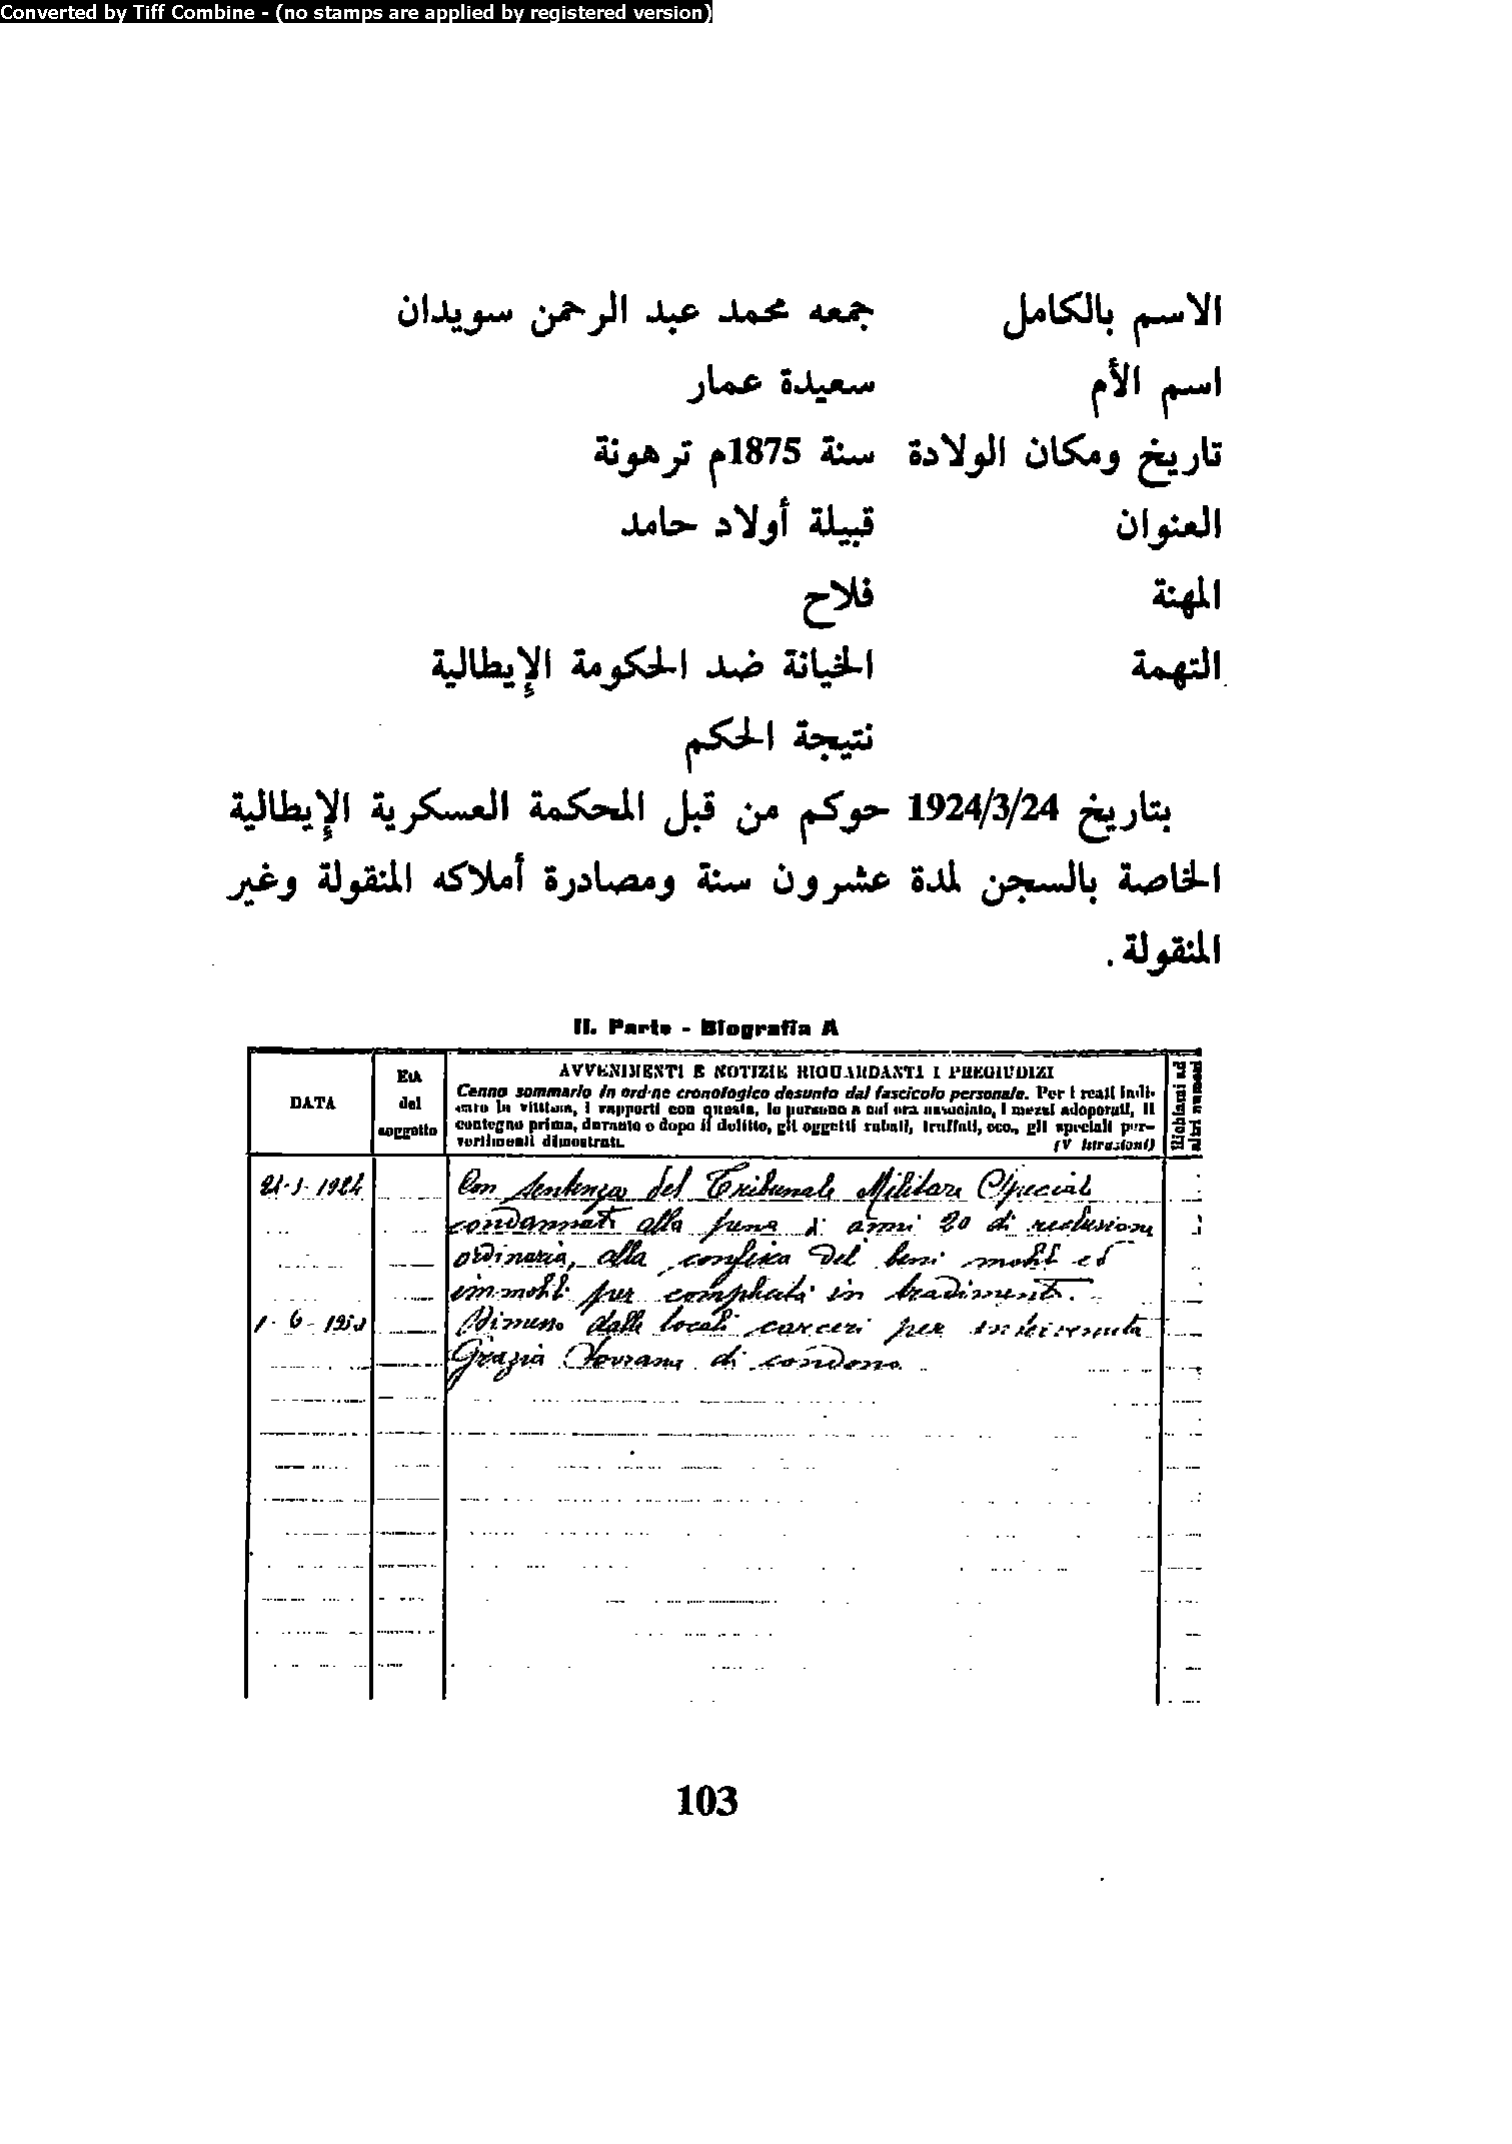 Converted by Tiff Combine - (no stamps are applied by registered version)
الاسم بالكامل جمعه محمد عبد الرحمن سويدان
اسم الأم سعيدة عمار
تاريخ ومكان الولادة سنة 1875م ترهونة
العنوان قبيلة أولاد حامد
المهنة فلاح
التهمة الخيانة ضد الحكومة الإيطالية
نتيجة الحكم
بتاريخ 1924/3/24 حوكم من قبل المحكمة العسكرية الإيطالية
الخاصة بالسجن لمدة عشرون سنة ومصادرة أملاكه المنقولة وغير
المنقولة .
II. Parte - Biografia A
DATA
Età
del
soggetto
AVVENIMENTI E NOTIZIE RIGUARDANTI I PREGIUDIZI
Cenno sommario in ordine cronologico desunto dal fascicolo personale. Per i reati indi-
la vittima, i rapporti con questa, le persone a cui era associato, i mezzi adoperati, il
contegno prima, durante o dopo il delitto, gli oggetti rubati, truffati, ecc., gli speciali per-
vertimenti dimostrati.
(V Istruzioni)
Richiami ad
altri numeri
Con sentenza del Tribunale Militare Speciale
condannato alla pena di anni 20 di reclusione
ordinaria, alla confisca dei beni mobili ed
immobili per complicità in tradimento.
Dimesso dalle locali carceri per intervenuta
Grazia Sovrana di condono
103